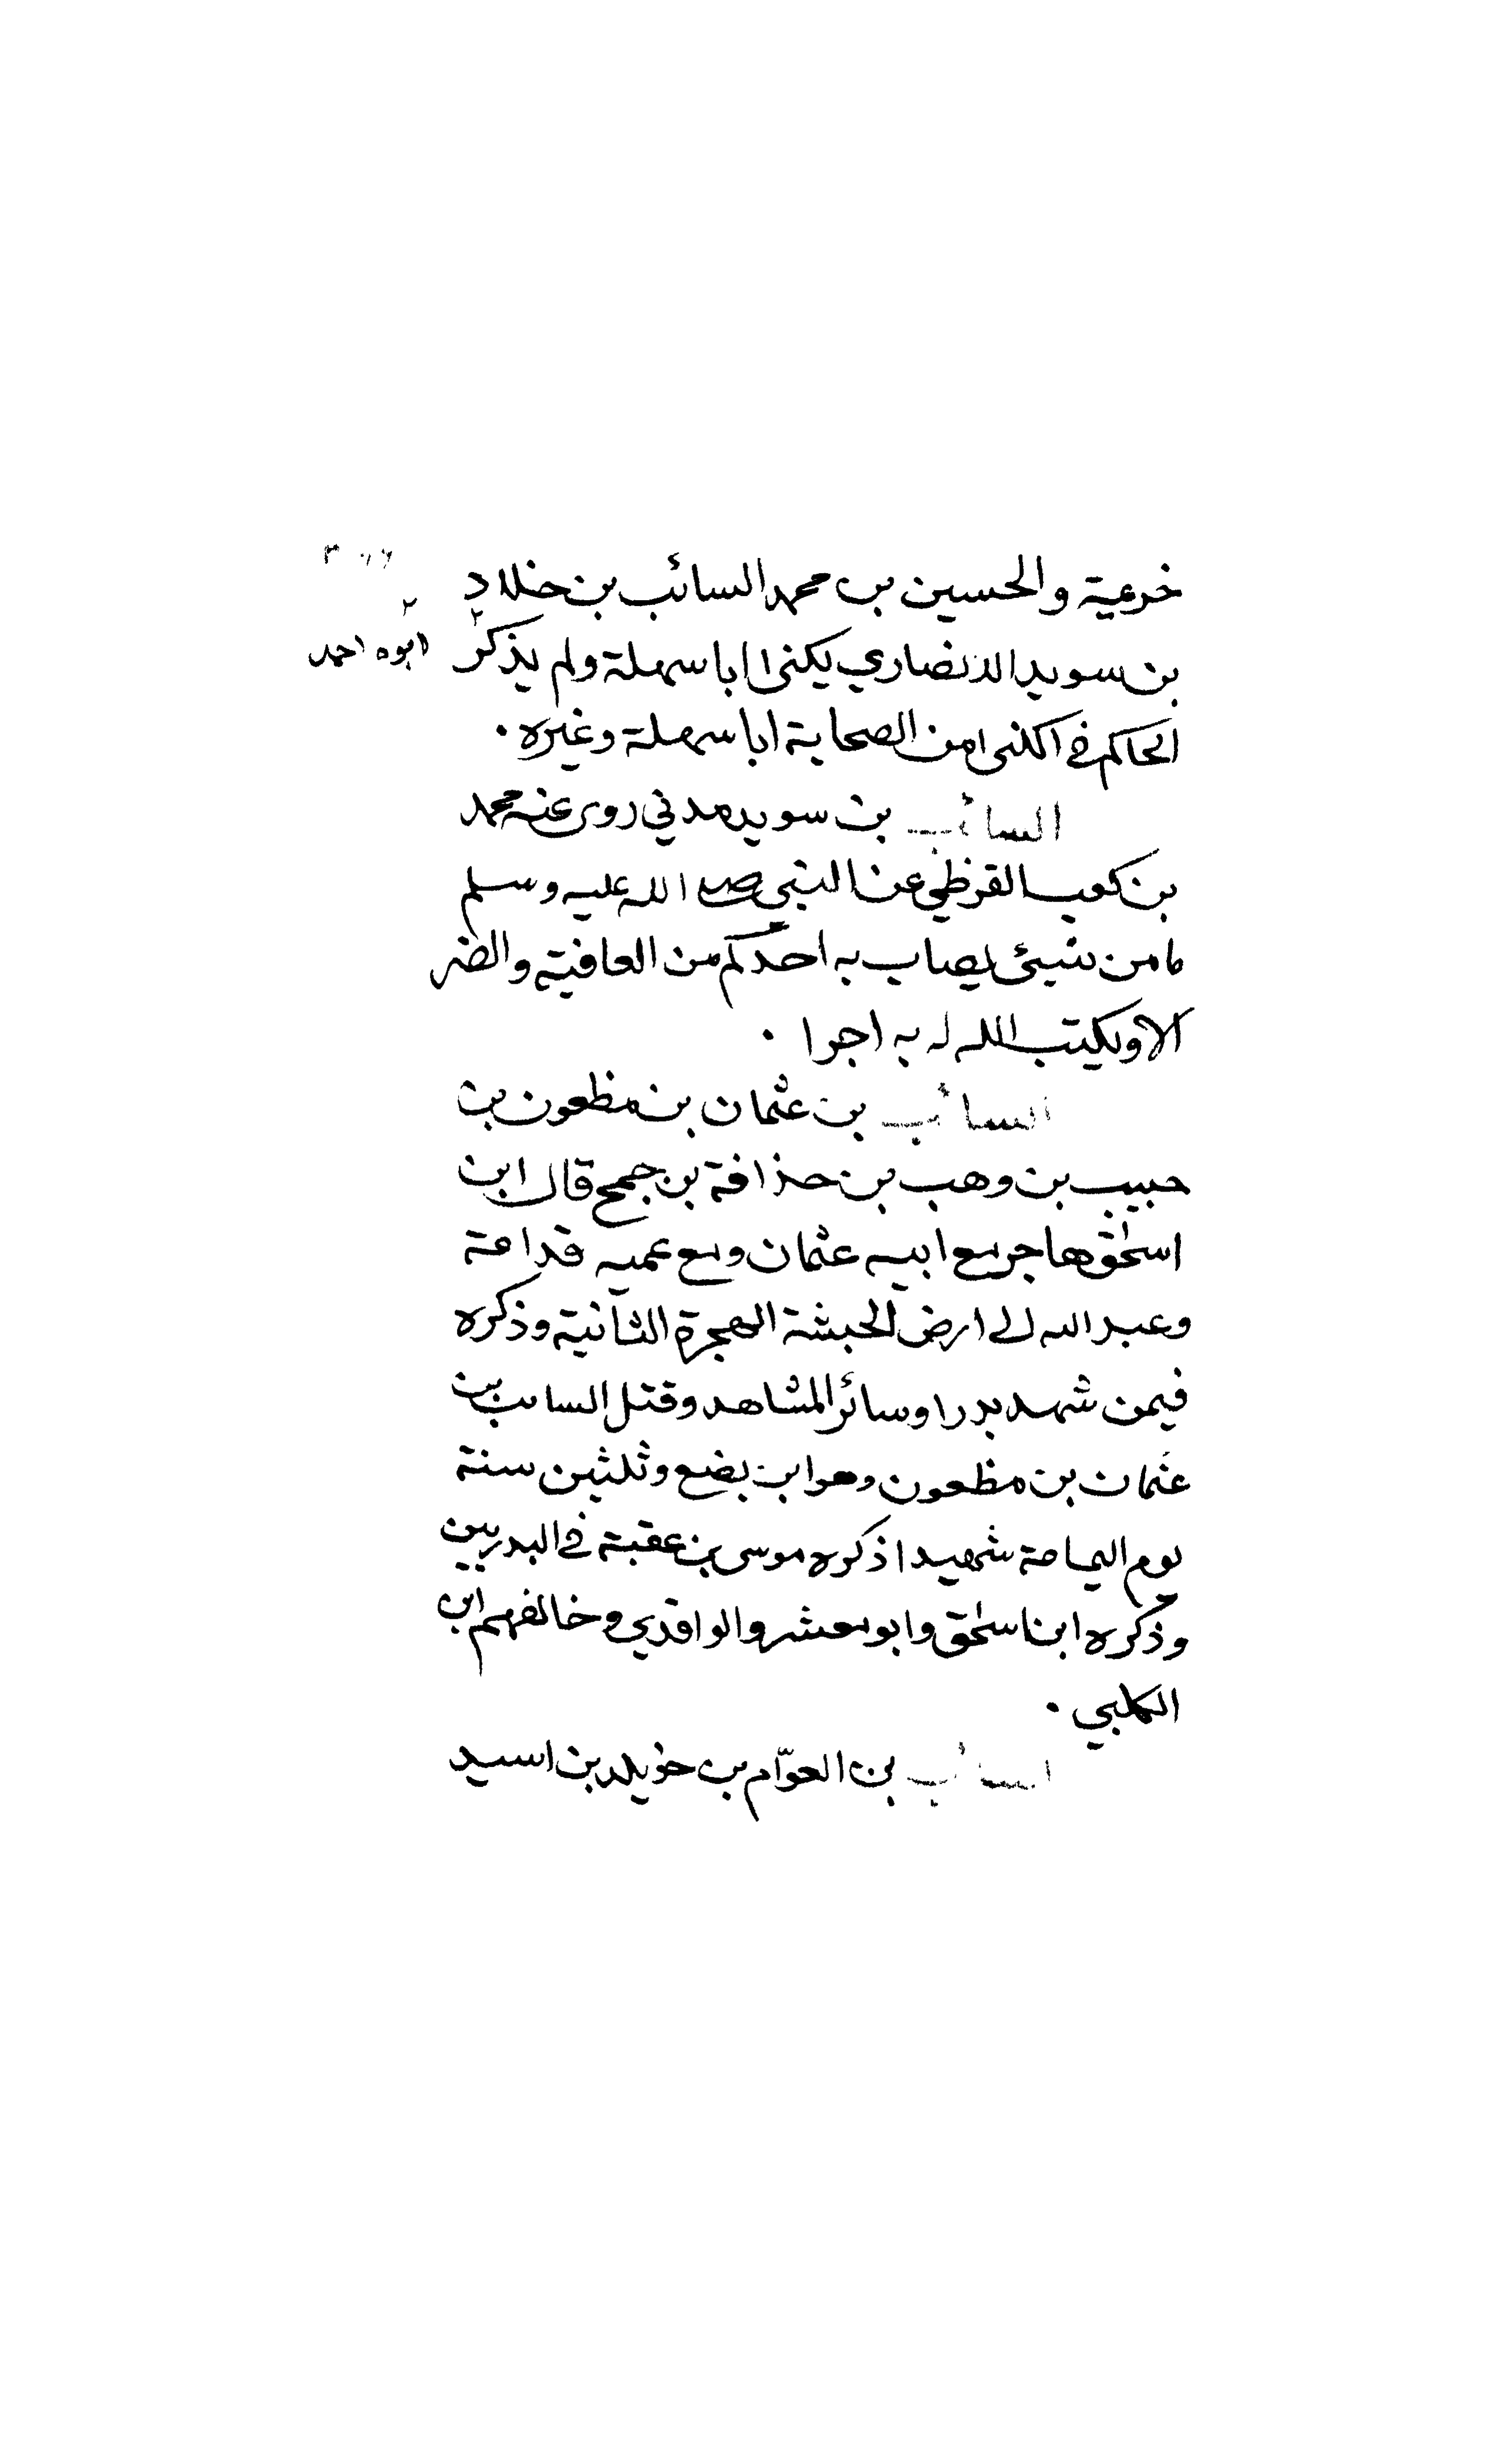 خرعية والحسين بن محمد السائب بن خلاد
بن سويد الانصاري يكنى ابا سهلة ولم يذكر
ابوه احمد
الحاكم في الكنى من الصحابة ابا سهلة وغيره .
السائب بن سويد مدني روى عنه محمد
بن كعب القرظي عن النبي صلى الله عليه وسلم
ما من شيئ يصاب به احدكم من العافية والضر
الا ويكتب الله له به اجرا .
السائب بن عثمان بن مظعون بن
حبيب بن وهب بن حذافة بن جمح قال ابن
اسحق هاجر مع ابيه عثمان ومع عميه قدامة
وعبد الله الى ارض الحبشة الهجرة الثانية وذكره
فيمن شهد بدرا وسائر المشاهد وقتل السائب بن
عثمان بن مظعون وهو ابن بضع وثلثين سنة
يوم اليمامة شهيدا ذكره موسى بن عقبة في البدريين
وذكره ابن اسحق وابو معشر والواقدي وخالفهم ابن
الكلبي .
السائب بن العوّام بن خويلد بن اسيد